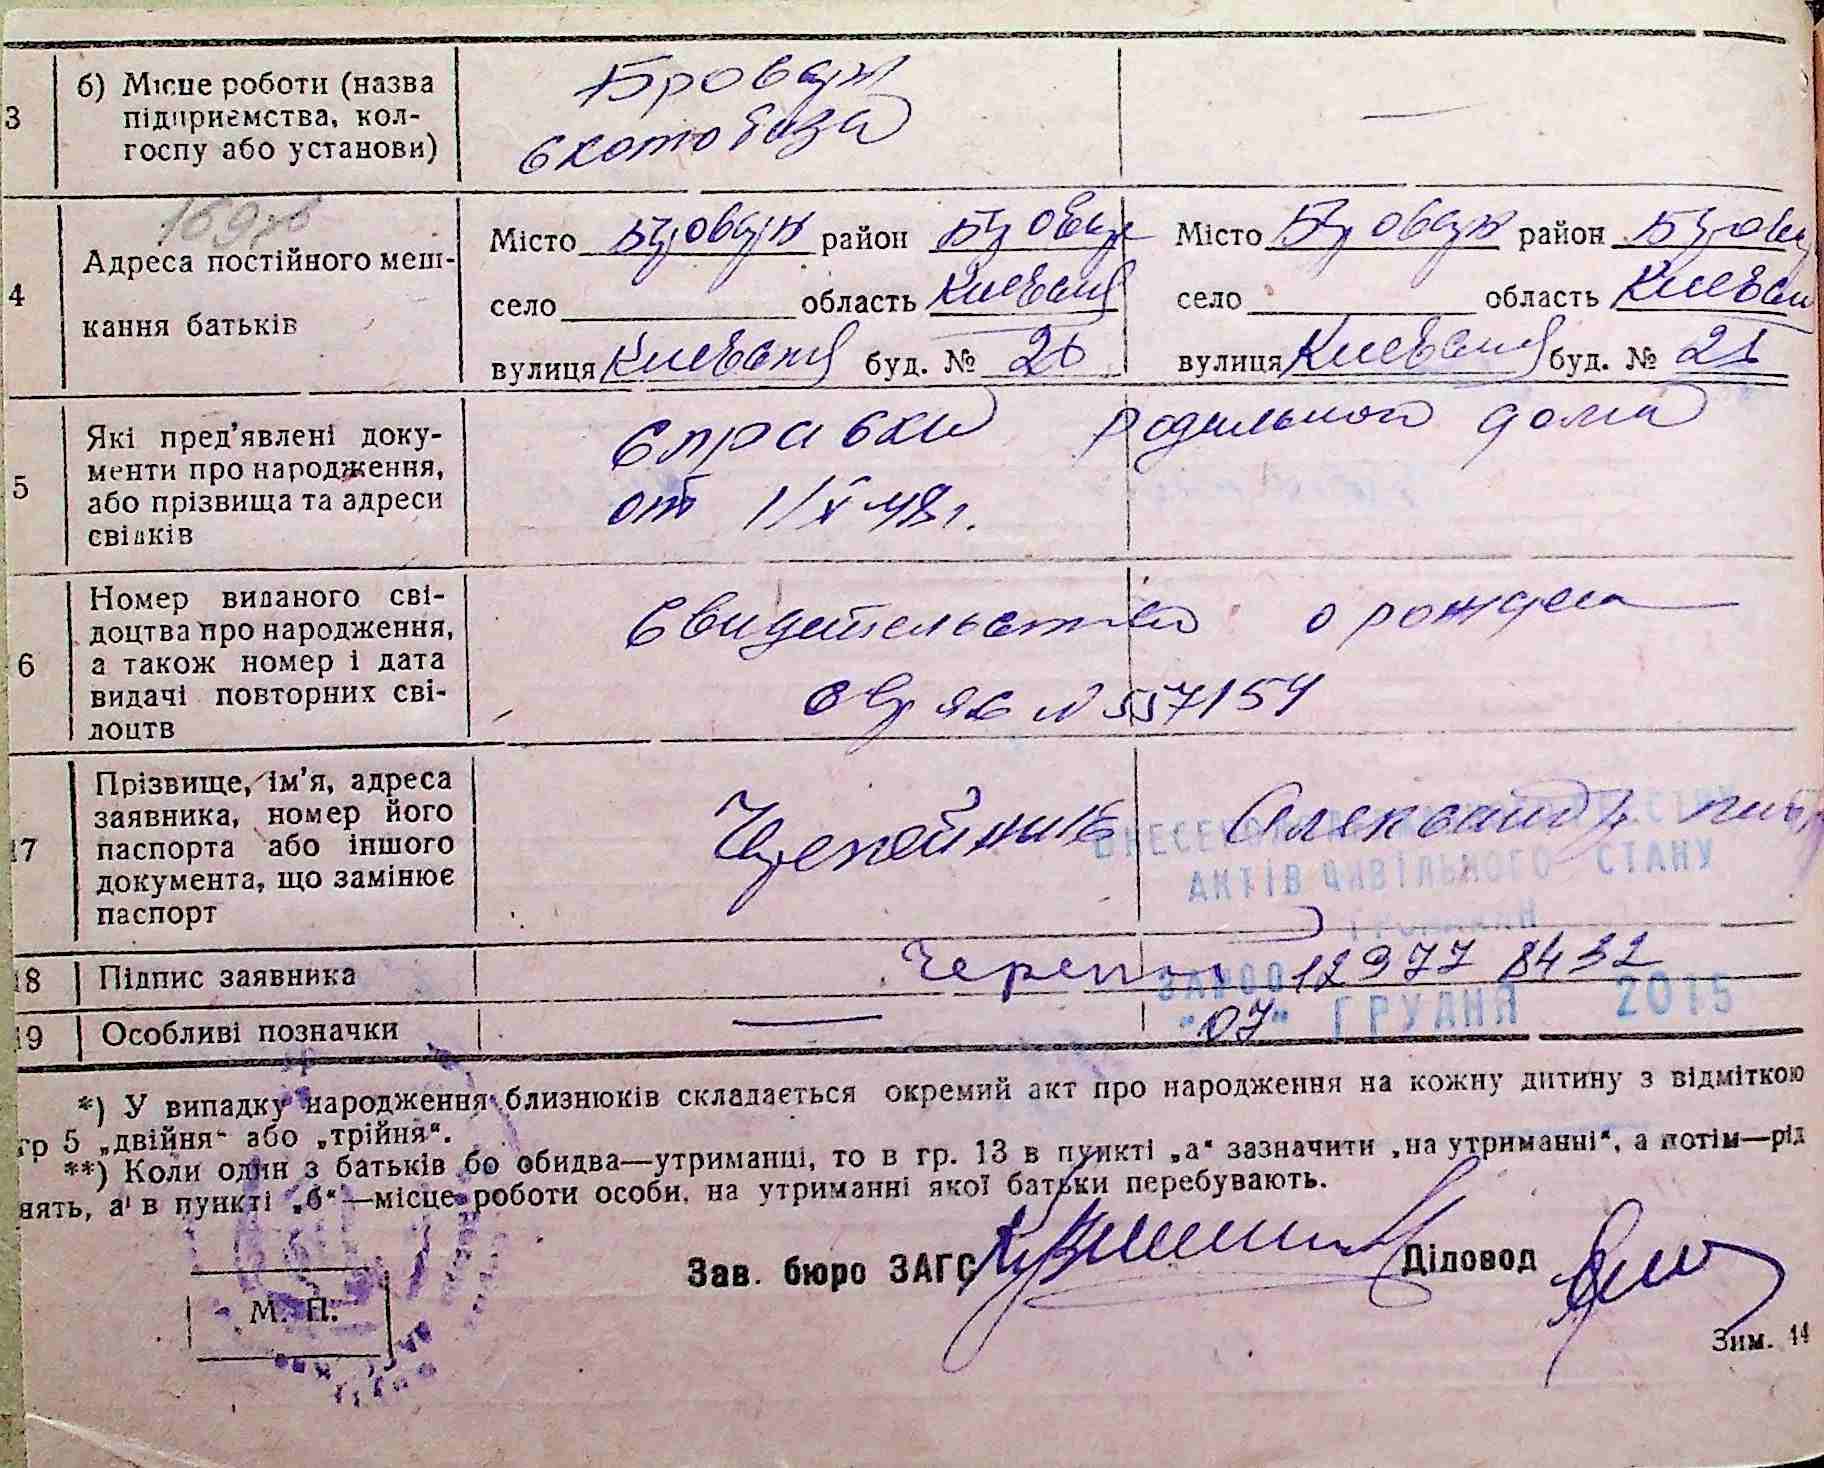 3 б) Місце роботи (назва підприємства, колгоспу або установи)
Бровари
скотобаза
—
4 Адреса постійного мешкання батьків
Місто Бровары район Бровар
село область Киевская
вулиця Киевская буд. №
Місто Бровары район Бровар
село область Киевская
вулиця Киевская буд. №
5 Які пред'явлені документи про народження, або прізвища та адреси свідків
Справки родильного дома
от 1/X 48 г.
6 Номер виданого свідоцтва про народження, а також номер і дата видачі повторних свідоцтв
Свидетельство о рожден
N 557154
17 Прізвище, ім'я, адреса заявника, номер його паспорта або іншого документа, що замінює паспорт
Александр
АКТІВ ЦИВІЛЬНОГО СТАНУ
ГРОМАДЯН
18 Підпис заявника
Череп
12977 8432
19 Особливі позначки
—
"07" ГРУДНЯ 2015
*) У випадку народження близнюків складається окремий акт про народження на кожну дитину з відміткою
гр 5 „двійня“ або „трійня“.
**) Коли один з батьків бо обидва—утриманці, то в гр. 13 в пункті „а“ зазначити „на утриманні“, а потім—рід
нять, а в пункті „б“—місце роботи особи, на утриманні якої батьки перебувають.
Зав. бюро ЗАГС
Діловод
М. П.
Зим. 14